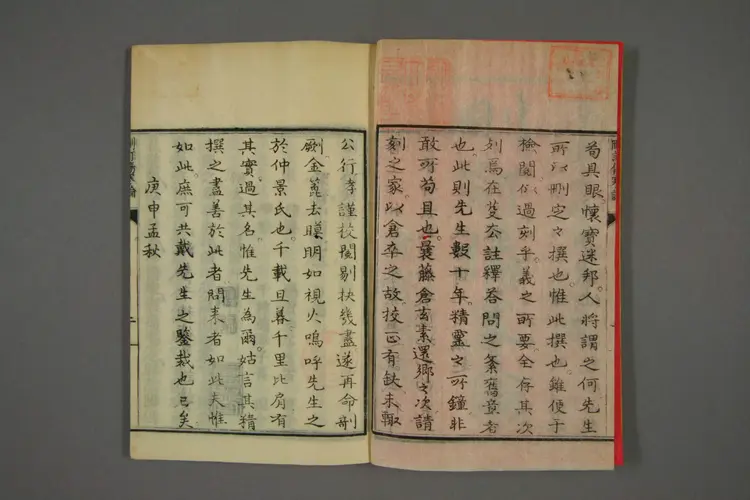 苟具眼懷寶迷邦人將謂之何先生
所以刪定之撰也惟此撰也雖便于
檢閱似過刻乎義之所要全存其次
列焉在芟去註釋答問之等舊章者
也此則先生數十年精靈之所鐘非
敢可苟且也曩藤倉玄素還鄉之次請
刻之家以倉卒之故挍正有缺未輙
公行李謹挍閱剔抉幾盡遂再命剞
劂金篦去瞙明如視火嗚呼先生之
於仲景氏也千載旦暮千里比肩有
其實過其名惟先生為爾姑言其精
撰之盡善於此者聞耒者如此夫惟
如此庶可共戴先生之鑒裁也已矣
庚申孟秋
二